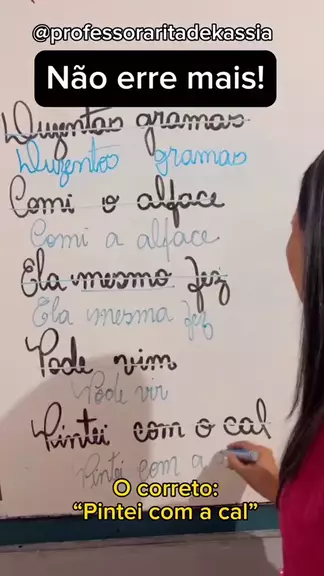 @professoraritadekassia
Não erre mais!
Duzentas gramas
Duzentos gramas
Comi o alface
Comi a alface
Ela mesmo fez
Ela mesma fez
Pode vim
Pode vir
Pintei com o cal
Pintei com a
O correto:
“Pintei com a cal”